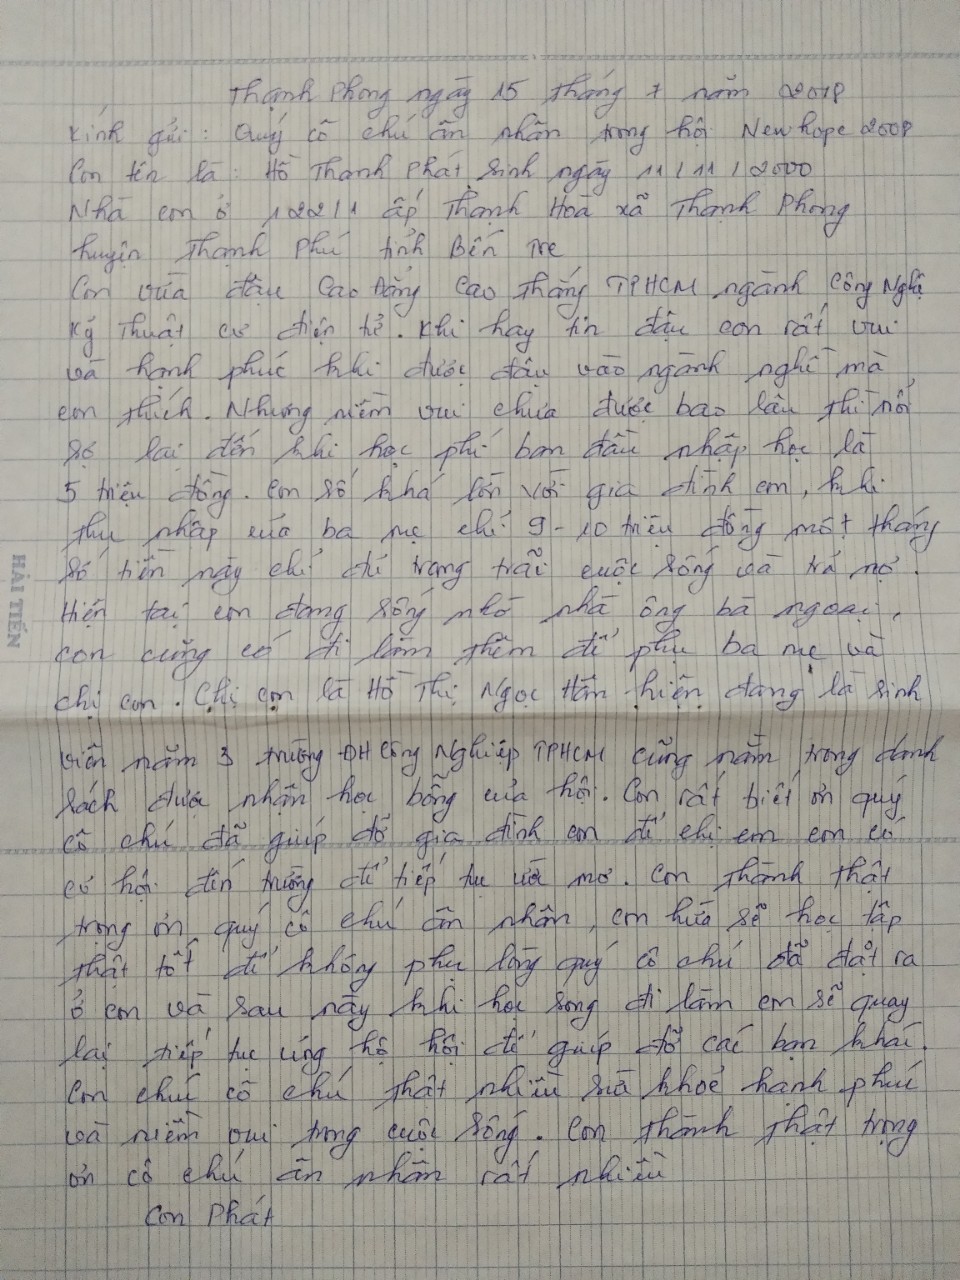 Thạnh Phong ngày 15 tháng 7 năm 2018
Kính gửi: Quý cô chú ân nhân trong hội New hope 2008
Con tên là: Hồ Thanh Phát, sinh ngày 11/11/2000
Nhà con ở 122/1 ấp Thạnh Hoà xã Thạnh Phong
huyện Thạnh Phú tỉnh Bến Tre
Con vừa đậu Cao Đẳng Cao Thắng TPHCM ngành Công Nghệ
Kỹ Thuật cơ điện tử. Khi hay tin đậu con rất vui
và hạnh phúc khi được đậu vào ngành nghề mà
con thích. Nhưng niềm vui chưa được bao lâu thì nỗi
sợ lại đến khi học phí ban đầu nhập học là
5 triệu đồng. Con số khá lớn với gia đình em, khi
thu nhập của ba mẹ chỉ 9-10 triệu đồng một tháng
số tiền này chỉ đủ trang trãi cuộc sống và trả nợ.
Hiện tại con đang sống nhờ nhà ông bà ngoại,
con cũng có đi làm thêm để phụ ba mẹ và
chị con. Chị con là Hồ Thị Ngọc Hân hiện đang là sinh
viên năm 3 trường ĐH Công Nghiệp TPHCM cũng nằm trong danh
sách được nhận học bổng của hội. Con rất biết ơn quý
cô chú đã giúp đỡ gia đình con để chị em con có
cơ hội đến trường để tiếp tục ước mơ. Con thành thật
trọng ơn quý cô chú ân nhân, em hứa sẽ học tập
thật tốt để không phụ lòng quý cô chú đã đặt ra
ở con và sau này khi học song đi làm em sẽ quay
lại tiếp tục ủng hộ hội để giúp đỡ các bạn khác.
Con chúc cô chú thật nhiều sức khoẻ hạnh phúc
và niềm vui trong cuộc sống. Con thành thật trọng
ơn cô chú ân nhân rất nhiều
Con Phát
HẢI TIẾN